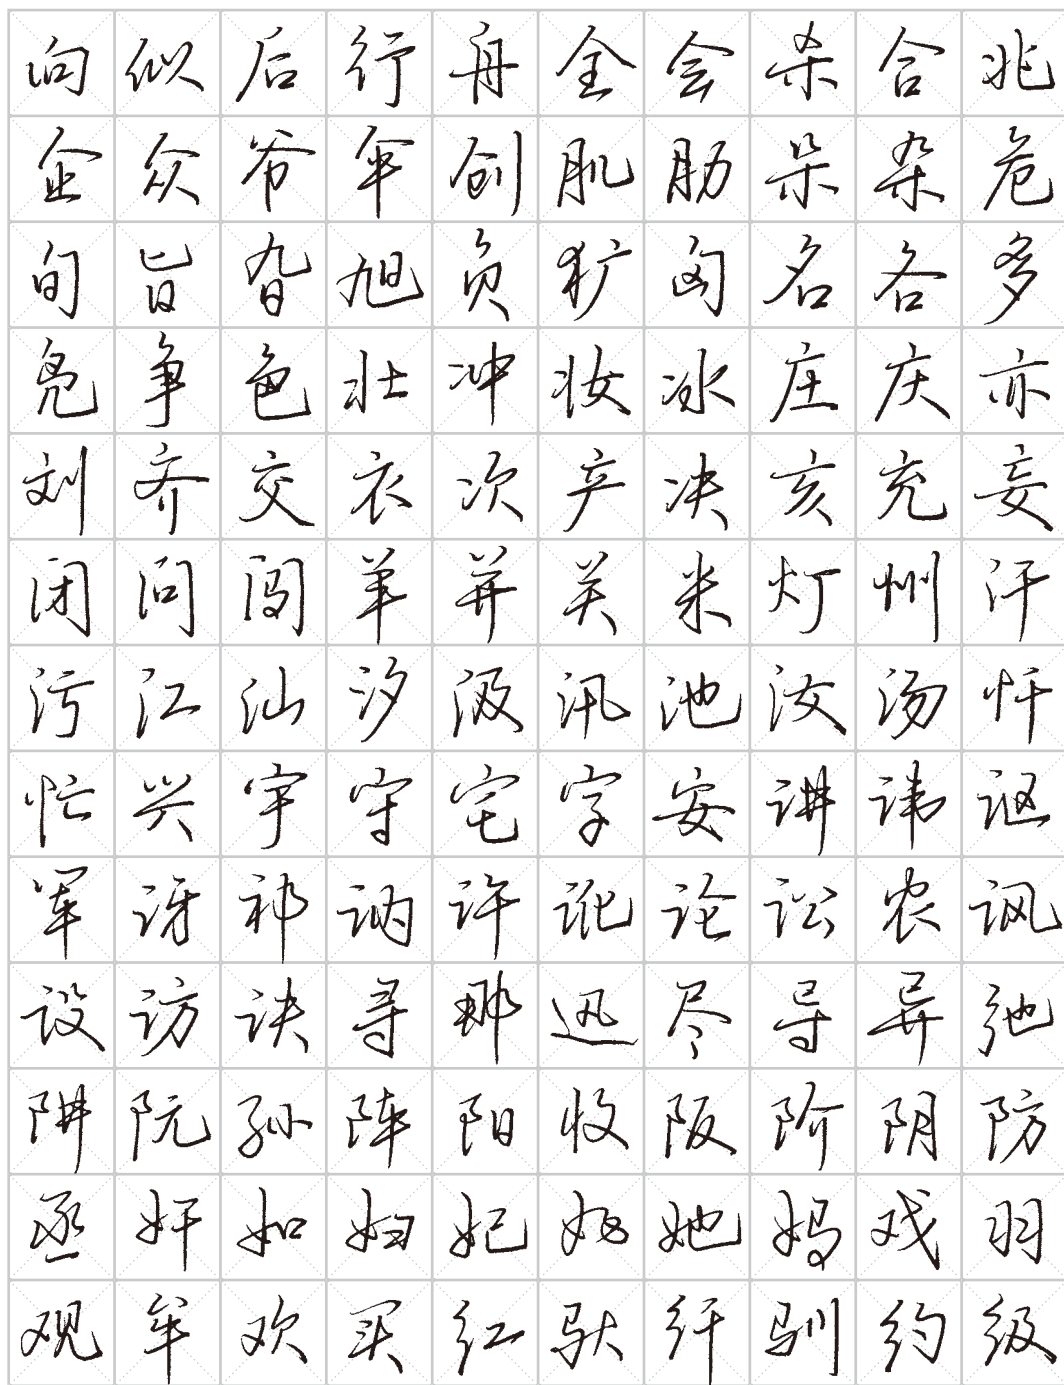 向似后行舟全会杀合兆
企众爷伞创肌肋朵杂危
旬旨旮旭负犷匈名各多
凫争色壮冲妆冰庄庆亦
刘齐交衣次产决亥充妄
闭问闯羊并关米灯州汗
污江汕汐汲汛池汝汤忏
忙兴宇守宅字安讲讳讴
军讶祁讷许讹论讼农讽
设访诀寻那迅尽导异弛
阱阮孙阵阳收阪阶阴防
丞奸如妇妃好她妈戏羽
观牟欢买红驮纤驯约级